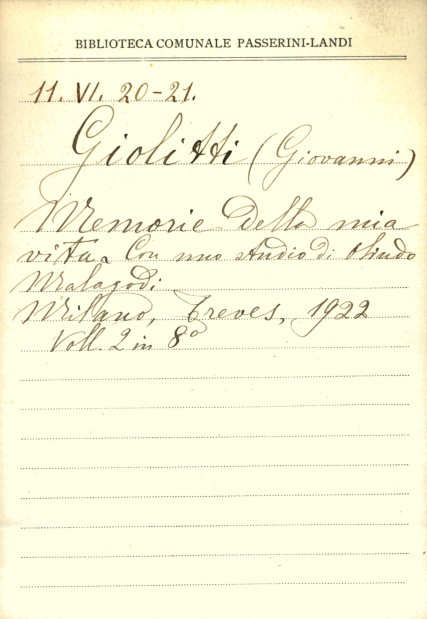 BIBLIOTECA COMUNALE PASSERINI-LANDI
11. VI. 20-21.
Giolitti (Giovanni)
Memorie della mia
vita. Con uno studio di Olindo
Malagodi
Milano, Treves, 1922
Voll. 2 in 8º